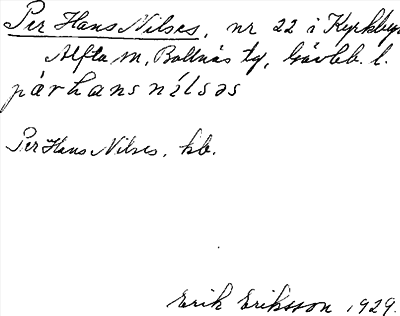 Per Hans Nilses, nr 22 i Kyrkbyn
Alfta sn, Bollnäs tg, Gävleb. l.
pärhansnilsəs
Per Hans Nilses, kb.
Erik Eriksson 1929.